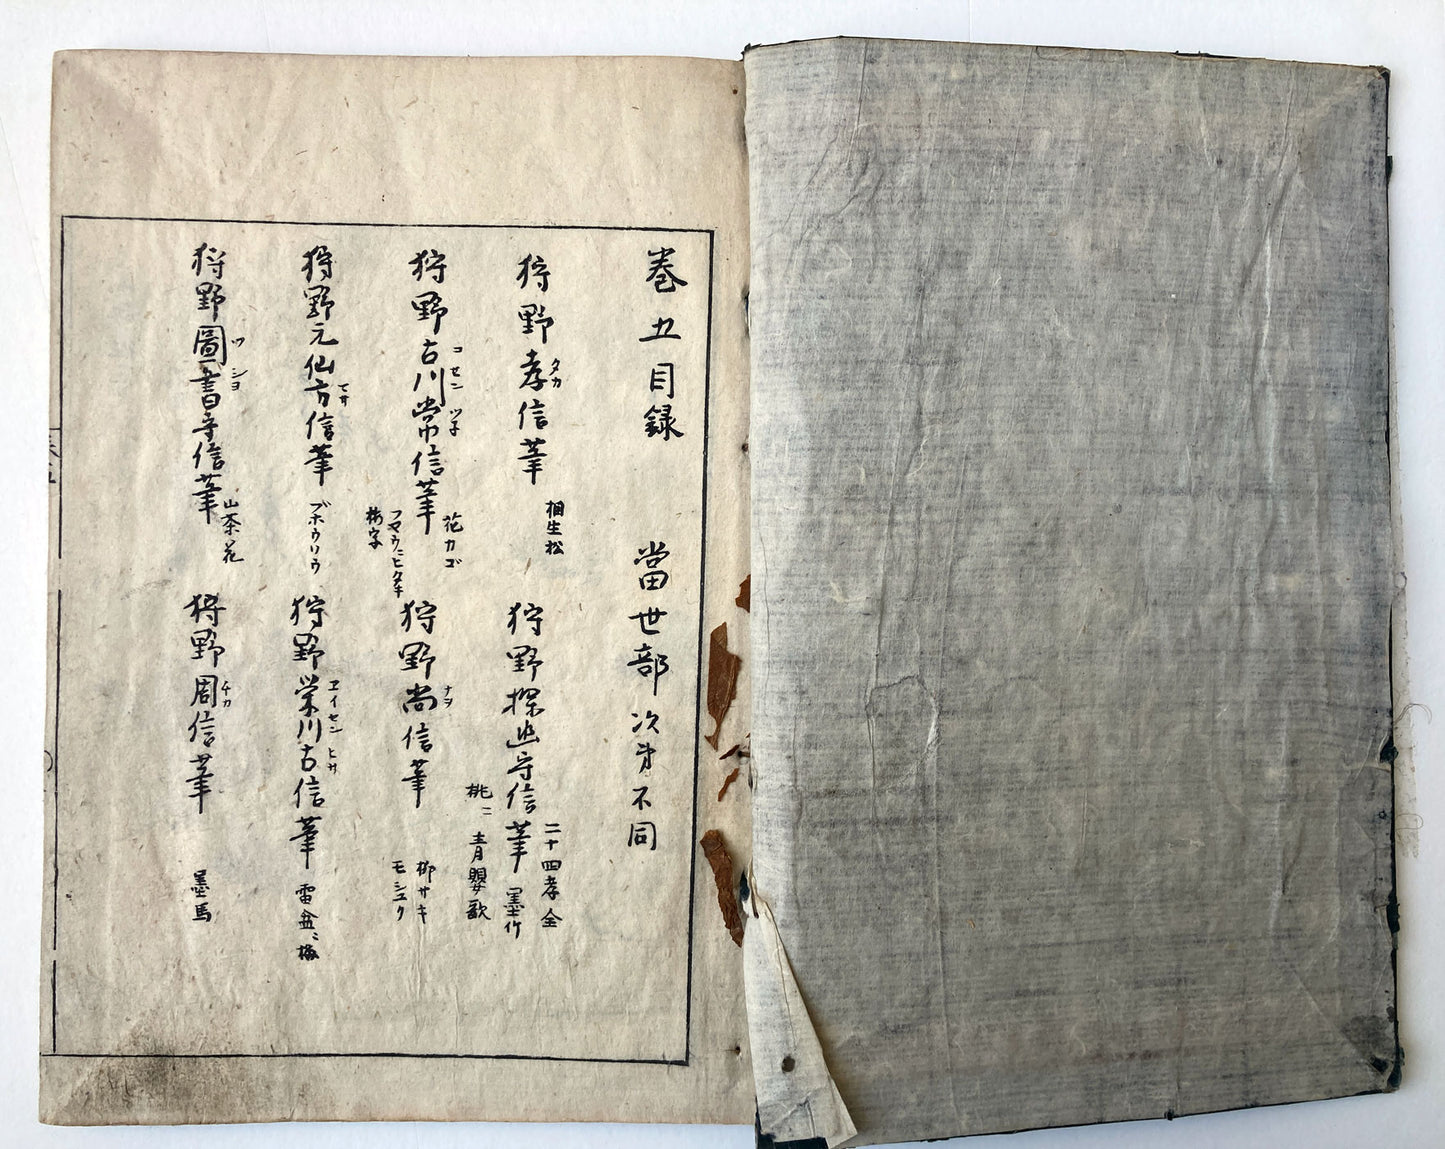 巻五目録　當世部次第不同
狩野孝信筆　相生松
タカ
狩野探幽守信筆　二十四孝全
墨竹
桃ニ青嬰歌
狩野古川常信筆　花カゴ
コセン　ツネ
狩野尚信筆　柳サキ
ナヲ
モシユク
狩野元仙方信筆　ブホウリウ
マサ
狩野栄川古信筆　雷盆ニ梅
エイセン　ヒサ
狩野圖書守信筆　山茶花
ツシヨ
狩野周信筆　墨馬
チカ